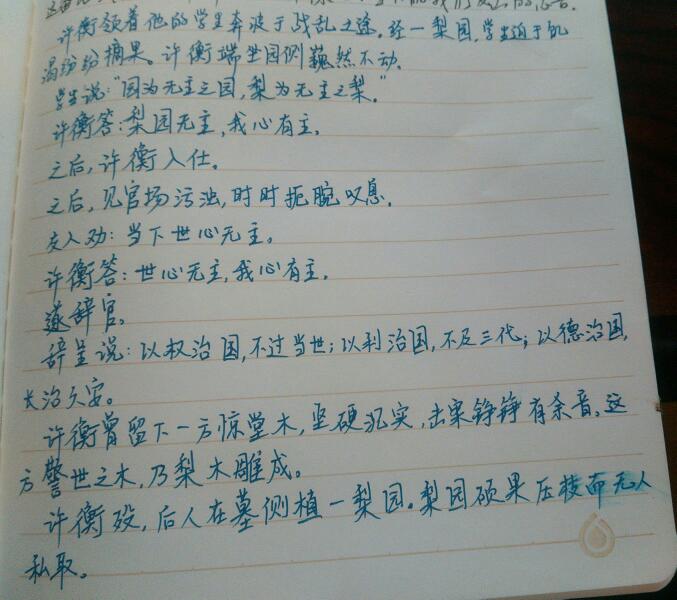 许衡领着他的学生奔波于战乱之途。经一梨园,学生迫于饥
渴纷纷摘果。许衡端坐园侧巍然不动。
学生说:“园为无主之园,梨为无主之梨。”
许衡答:梨园无主,我心有主。
之后,许衡入仕。
之后,见官场污浊,时时扼腕叹息。
友人劝:当下世心无主。
许衡答:世心无主,我心有主。
遂辞官。
辞呈说:以权治国,不过当世;以利治国,不及三代;以德治国,
长治久安。
许衡曾留下一方惊堂木,坚硬沉实,击案铮铮有余音。这
方警世之木,乃梨木雕成。
许衡殁,后人在墓侧植一梨园。梨园硕果压枝而无人
私取。